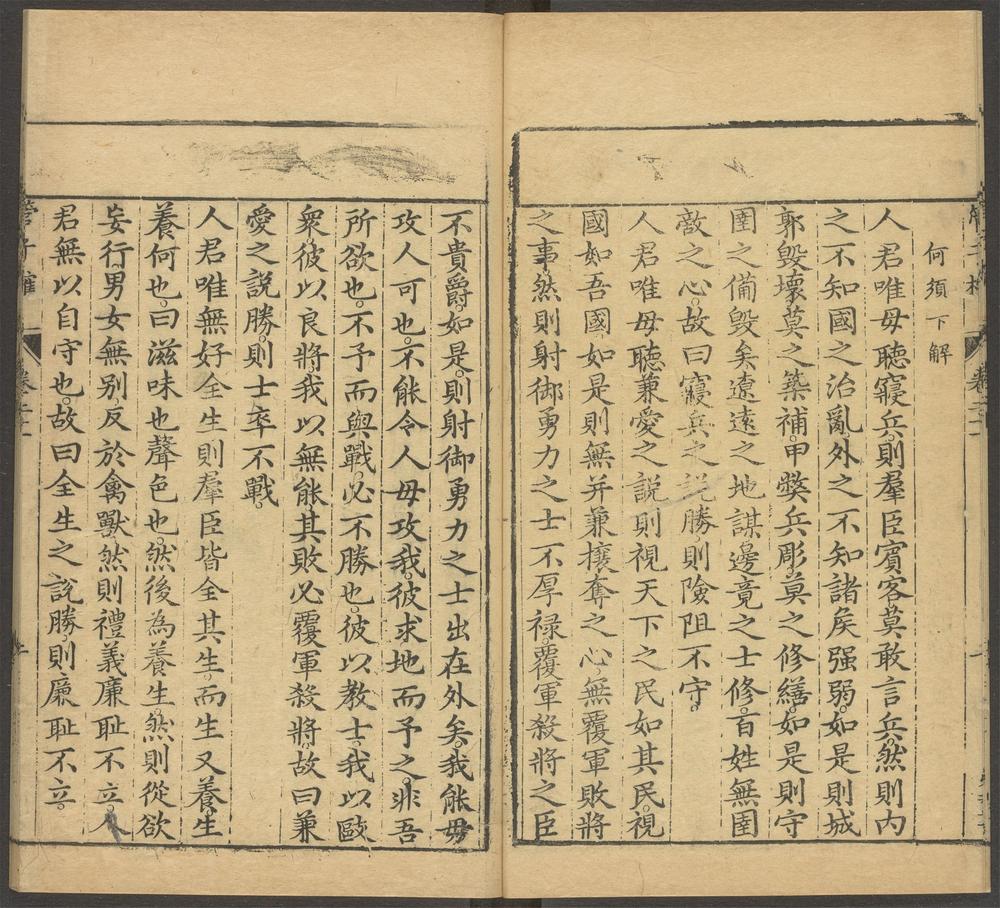 何須下解
人君唯毋聽寢兵則羣臣賓客莫敢言兵然則内
之不知國之治亂外之不知諸矦强弱如是則城
郭毀壞莫之築補甲獘兵彫莫之修繕如是則守
圉之備毀矣遼遠之地謀邊竟之士修百姓無圉
敵之心故曰寢兵之説勝則險阻不守
人君唯毋聽兼愛之説則視天下之民如其民視
國如吾國如是則無并兼攘奪之心無覆軍敗將
之事然則射御勇力之士不厚禄覆軍殺將之臣
不貴爵如是則射御勇力之士出在外矣我能毋
攻人可也不能令人毋攻我彼求地而予之非吾
所欲也不予而與戰必不勝也彼以教士我以歐
衆彼以良將我以無能其敗必覆軍殺將故曰兼
愛之説勝則士卒不戰
人君唯無好全生則羣臣皆全其生而生又養生
養何也曰滋味也聲色也然後為養生然則從欲
妄行男女無别反於禽獸然則禮義廉耻不立人
君無以自守也故曰全生之説勝則廉耻不立